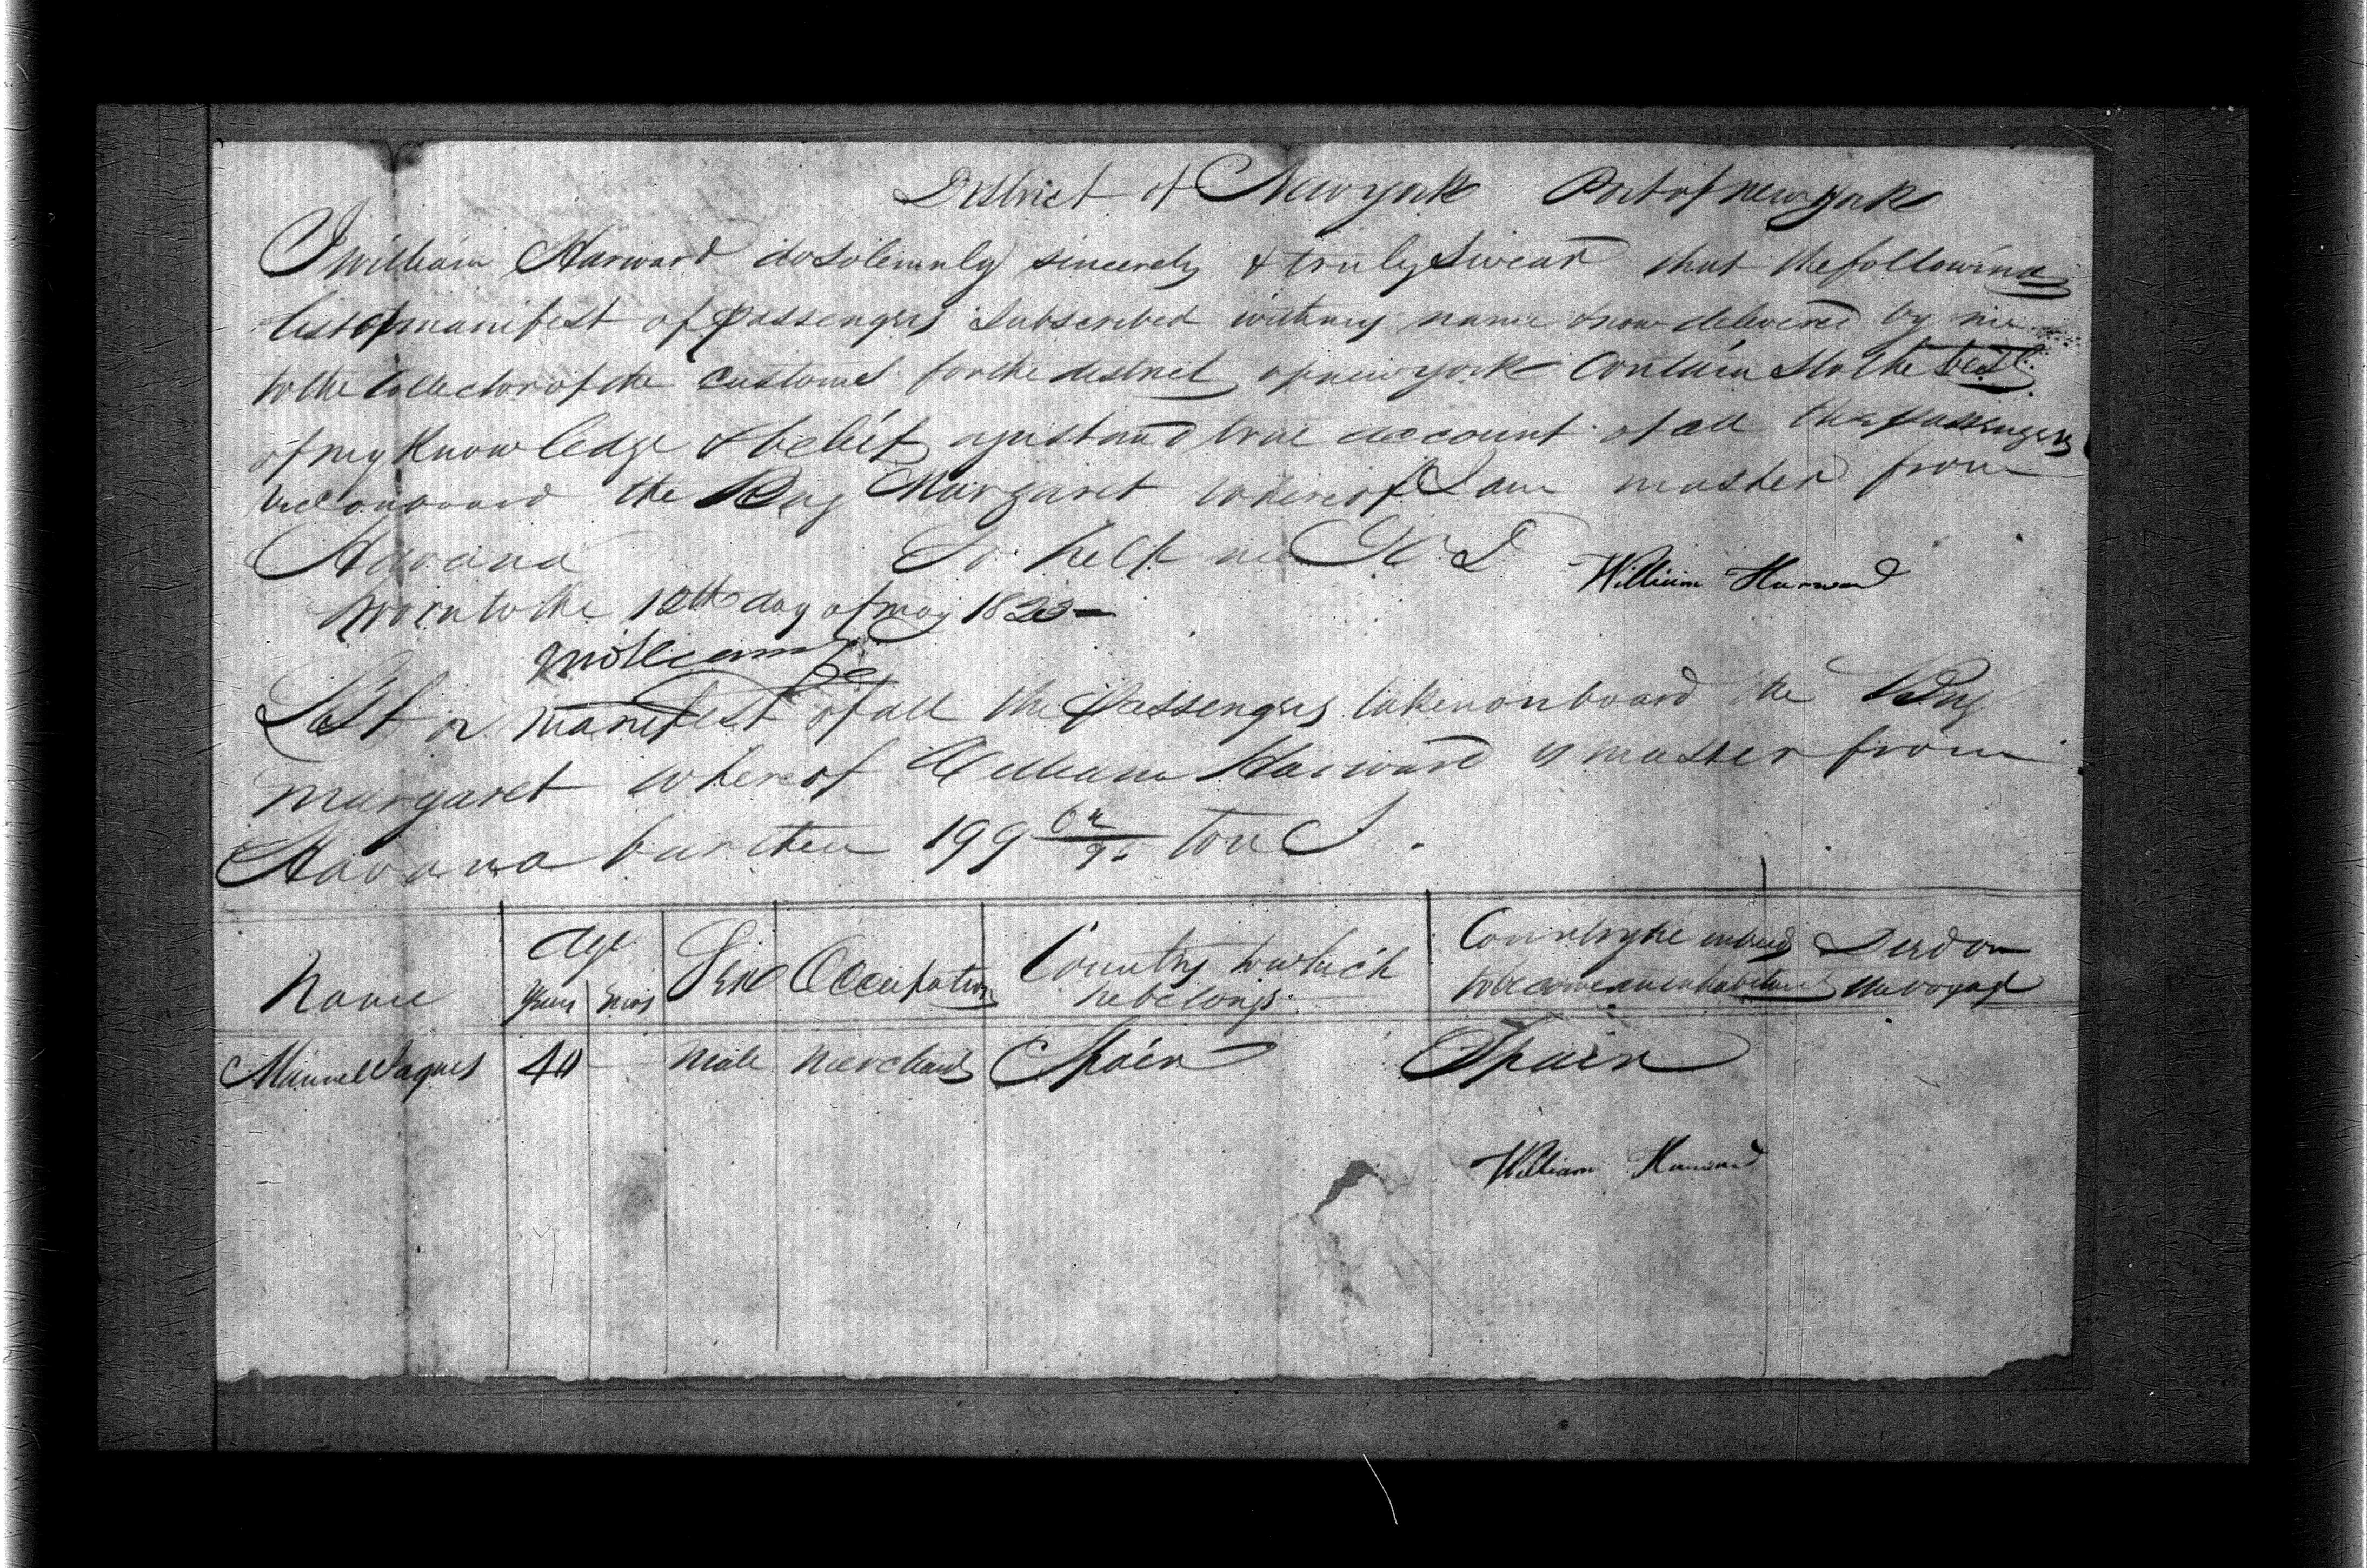 District of New york Port of new york
I william Harward do solemnly sincerely & truly swear that the following
list or manifest of passengers subscribed with my name & now delivered by me
to the Collector of the customs for the district of new york Contains to the best
of my Knowledge & belief a just and true account of all the passengers
on board the Brig Margaret whereof I am master from
Havana So help me God
William Harward
Sworn to the 12th day of may 1823
List or manifest of all the passengers taken on board the Brig
margaret whereof William Harward is master from
Havana burthen 199 Tons.
Name Age years mos Sex Occupation Country to which he belongs Country he intends to become an inhabitant Died on the voyage
Manuel 40 male merchant Spain Spain
William Harward